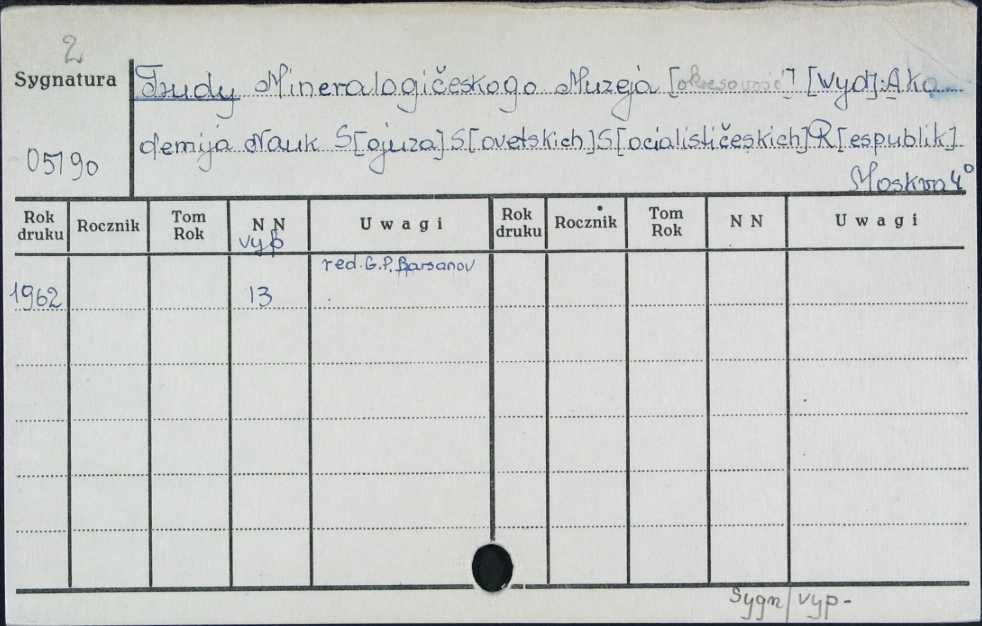 2
Sygnatura
05190
Trudy Mineralogičeskogo Muzeja [okresowość] [Wyd]: Aka-
demija Nauk S[ojuza] S[ovetskich] S[ocialističeskich] R[espublik]
Moskva 4°
Rok druku Rocznik Tom Rok N N vyp Uwagi Rok druku Rocznik Tom Rok N N Uwagi
red. G.P. Barsanov
1962 13
Sygn/vyp-